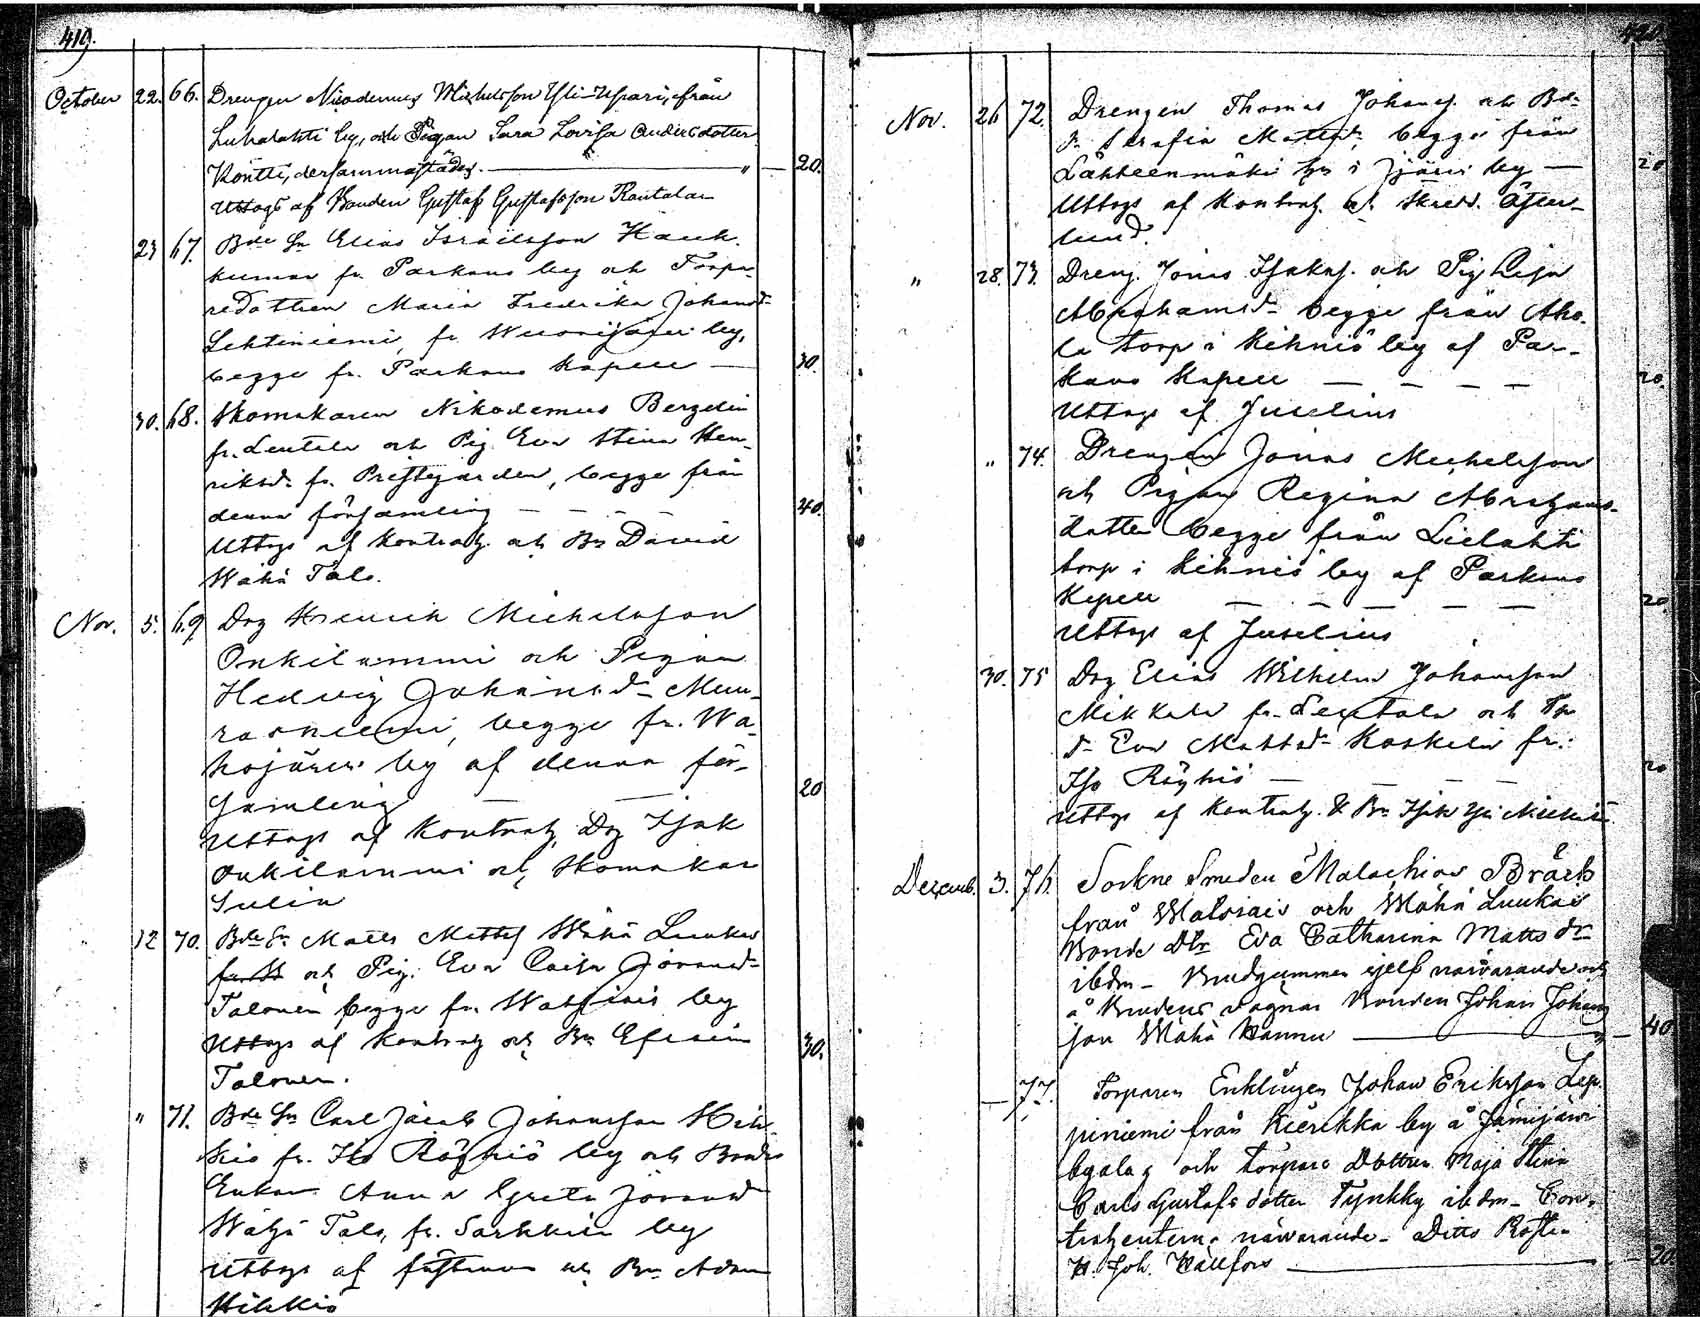 419.
October 22. 66. Drengen Nicodemus Michelsson Yli-Upari, från
Luhalahti by, och Pigan Sara Lovisa Andersdotter
Köntti, dersammastädes. — " — 20.
Uttogs af Bonden Gustaf Gustafsson Rantala
23 67. Bde Sn Elias Israelsson Hauk-
kuman fr. Parkano by och Torpa-
redottren Maria Fredrika Johansd-
Lehtiniemi, fr. Wuorijärvi by,
begge fr. Parkano Kapell — 30.
30. 68. Skomakaren Nikodemus Bergelin
fr. Leutala och Pig. Eva Stina Hen-
riksd. fr. Prestegården, begge från
denna församling — — — — 40.
Uttogs af Kontrah. och Bn David
Wähä Talo.
Nov. 5. 69 Drg Henrik Michelsson
Onkilammi och Pigan
Hedvig Johansd- Muu-
rasniemi, begge fr. Wa-
hojärvi by af denna för-
samling — — 20
Uttogs af Kontrah. Drg Isak
Onkilammi och Skomakar
Sulin
12 70. Bde Sn Matts Mattss Wähä Luukas
och Pig. Eva Caisa Joransd-
Talonen begge fr. by
Uttogs af Kontrah och Bn Efraim 30.
Talonen.
" 71. Bde Sn Carl Jacob Johansson Hik-
kiö fr. Iso Röyhiö by och Bonde
Enkan Anna Greta Joransd
Wähä Talo, fr. Sarkkila by
Uttogs af fästman och Bn Adam
Hikkiö
420
Nov. 26 72. Drengen Thomas Johanss. och Bde
d. Serafia Mattsd. begge från
Lähteenmäki hn i Jyjärvi by — 20
Uttogs af Kontrah. och Skredd. Öster-
lund.
" 28. 73. Dreng. Jonas Isaks. och Pig Lisa
Abrahamsd- begge från Aho-
la torp i Kihniö by af Par-
kano Kapell — — — — 20.
Uttogs af Juselius
" 74. Drengen Jonas Michelsson
och Pigan Regina Abrahams-
dotter begge från Lielahti
torp i Kihniö by af Parkano
Kapell — — — — — 20
Uttogs af Juselius
30. 75 Drg Elias Wilhelm Johansson
Mikkola fr. Leutala och Tp
d- Eva Mattsd- Koskela fr.:
Iso Röyhiö — — — 20
Uttogs af Kontrah. & Bn Isak Yli
Decemb. 3. 76. Sockne Smeden Malachias Bräck
från och Wähä Luukas
Bonde Dtr Eva Catharina Matts dr
ibdm- Brudgummen sjelf närvarande och
å Brudens vägnar Bonden Johan Johans
son Wähä Hannu — " — 40
— 77. Torparen Enklingen Johan Eriksson Lep-
piniemi från Kierikka by å Jämijärvi
bylag och torpare Dottren Maja Stina
Carls Gustafs dotter Tynkky ibdm- Con-
trahenterna närvarande- Ditto
H. Joh. Hällfors — 20.